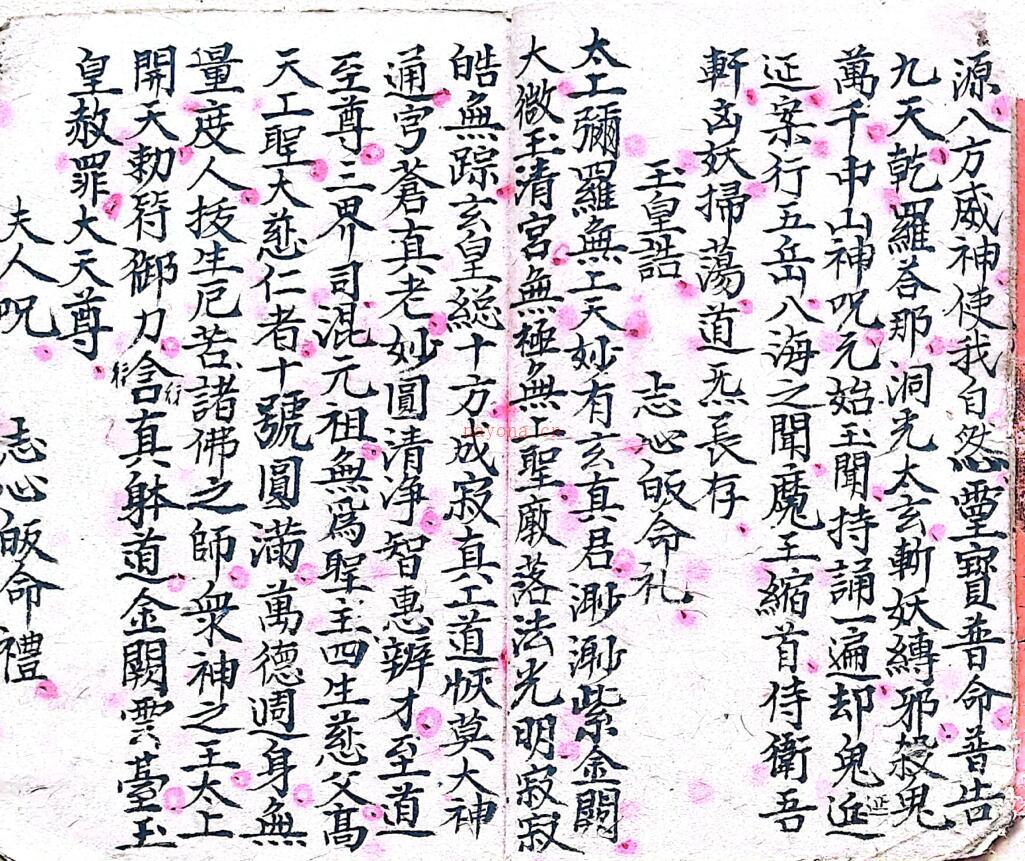 源八方威神使我自然霊寶普命普告
九天乾羅荅那洞光太玄斬妖縛邪殺鬼
萬千中山神呪元始玉聞持誦一遍却鬼延
延案行五岳八海之聞魔王縮首侍衛吾
軒凶妖掃蕩道炁長存
玉皇誥 志心皈命礼
太工彌羅無上天妙有玄真君渺渺紫金闕
大微玉清宮無極無聖廠落法光明寂寂
皓無踪玄皇総十方成寂真工道恢莫大神
通穹蒼真老妙圓清浄智惠辨才至道
至尊三界司混元祖無爲聖主四生慈父高
天工聖大慈仁者十號圓滿萬德週身無
量度人拔生厄苦諸佛之師衆神之王太上
開天勅符御力含真躰道金闕雲臺玉
皇赦罪大天尊
夫人呪 志心皈命禮
延
行
行
nayona.cn